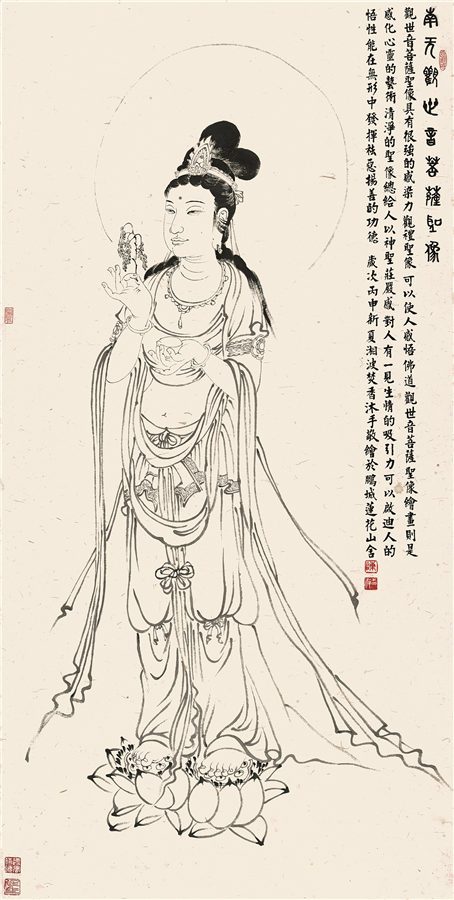 南无觀世音菩薩聖像
觀世音菩薩聖像具有很強的感染力觀禮聖像可以使人感悟佛道觀世音菩薩聖像繪畫則是
感化心靈的藝術清淨的聖像總給人以神聖莊嚴感對人有一見生情的吸引力可以啟迪人的
悟性能在無形中發揮祛惡揚善的功德 歲次丙申新夏湘波焚香沐手敬繪於鵬城蓮花山舍